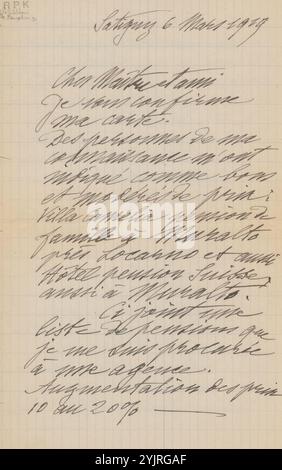 R P K
Satigny 6 Mars 1919
Cher Maître et ami
Je vous confirme
ma carte.
Des personnes de ma
connaissance m'ont
indiqué comme bons
et modérés de prix :
Villa pension de
famille à Muralto
près Locarno et aussi
Hôtel pension Suisse,
aussi à Muralto.
Ci joint une
liste de pensions que
je me suis procurée
à une agence.
Augmentation des prix
10 au 20%
alamy
Image ID: 2YJRGAF
www.alamy.com